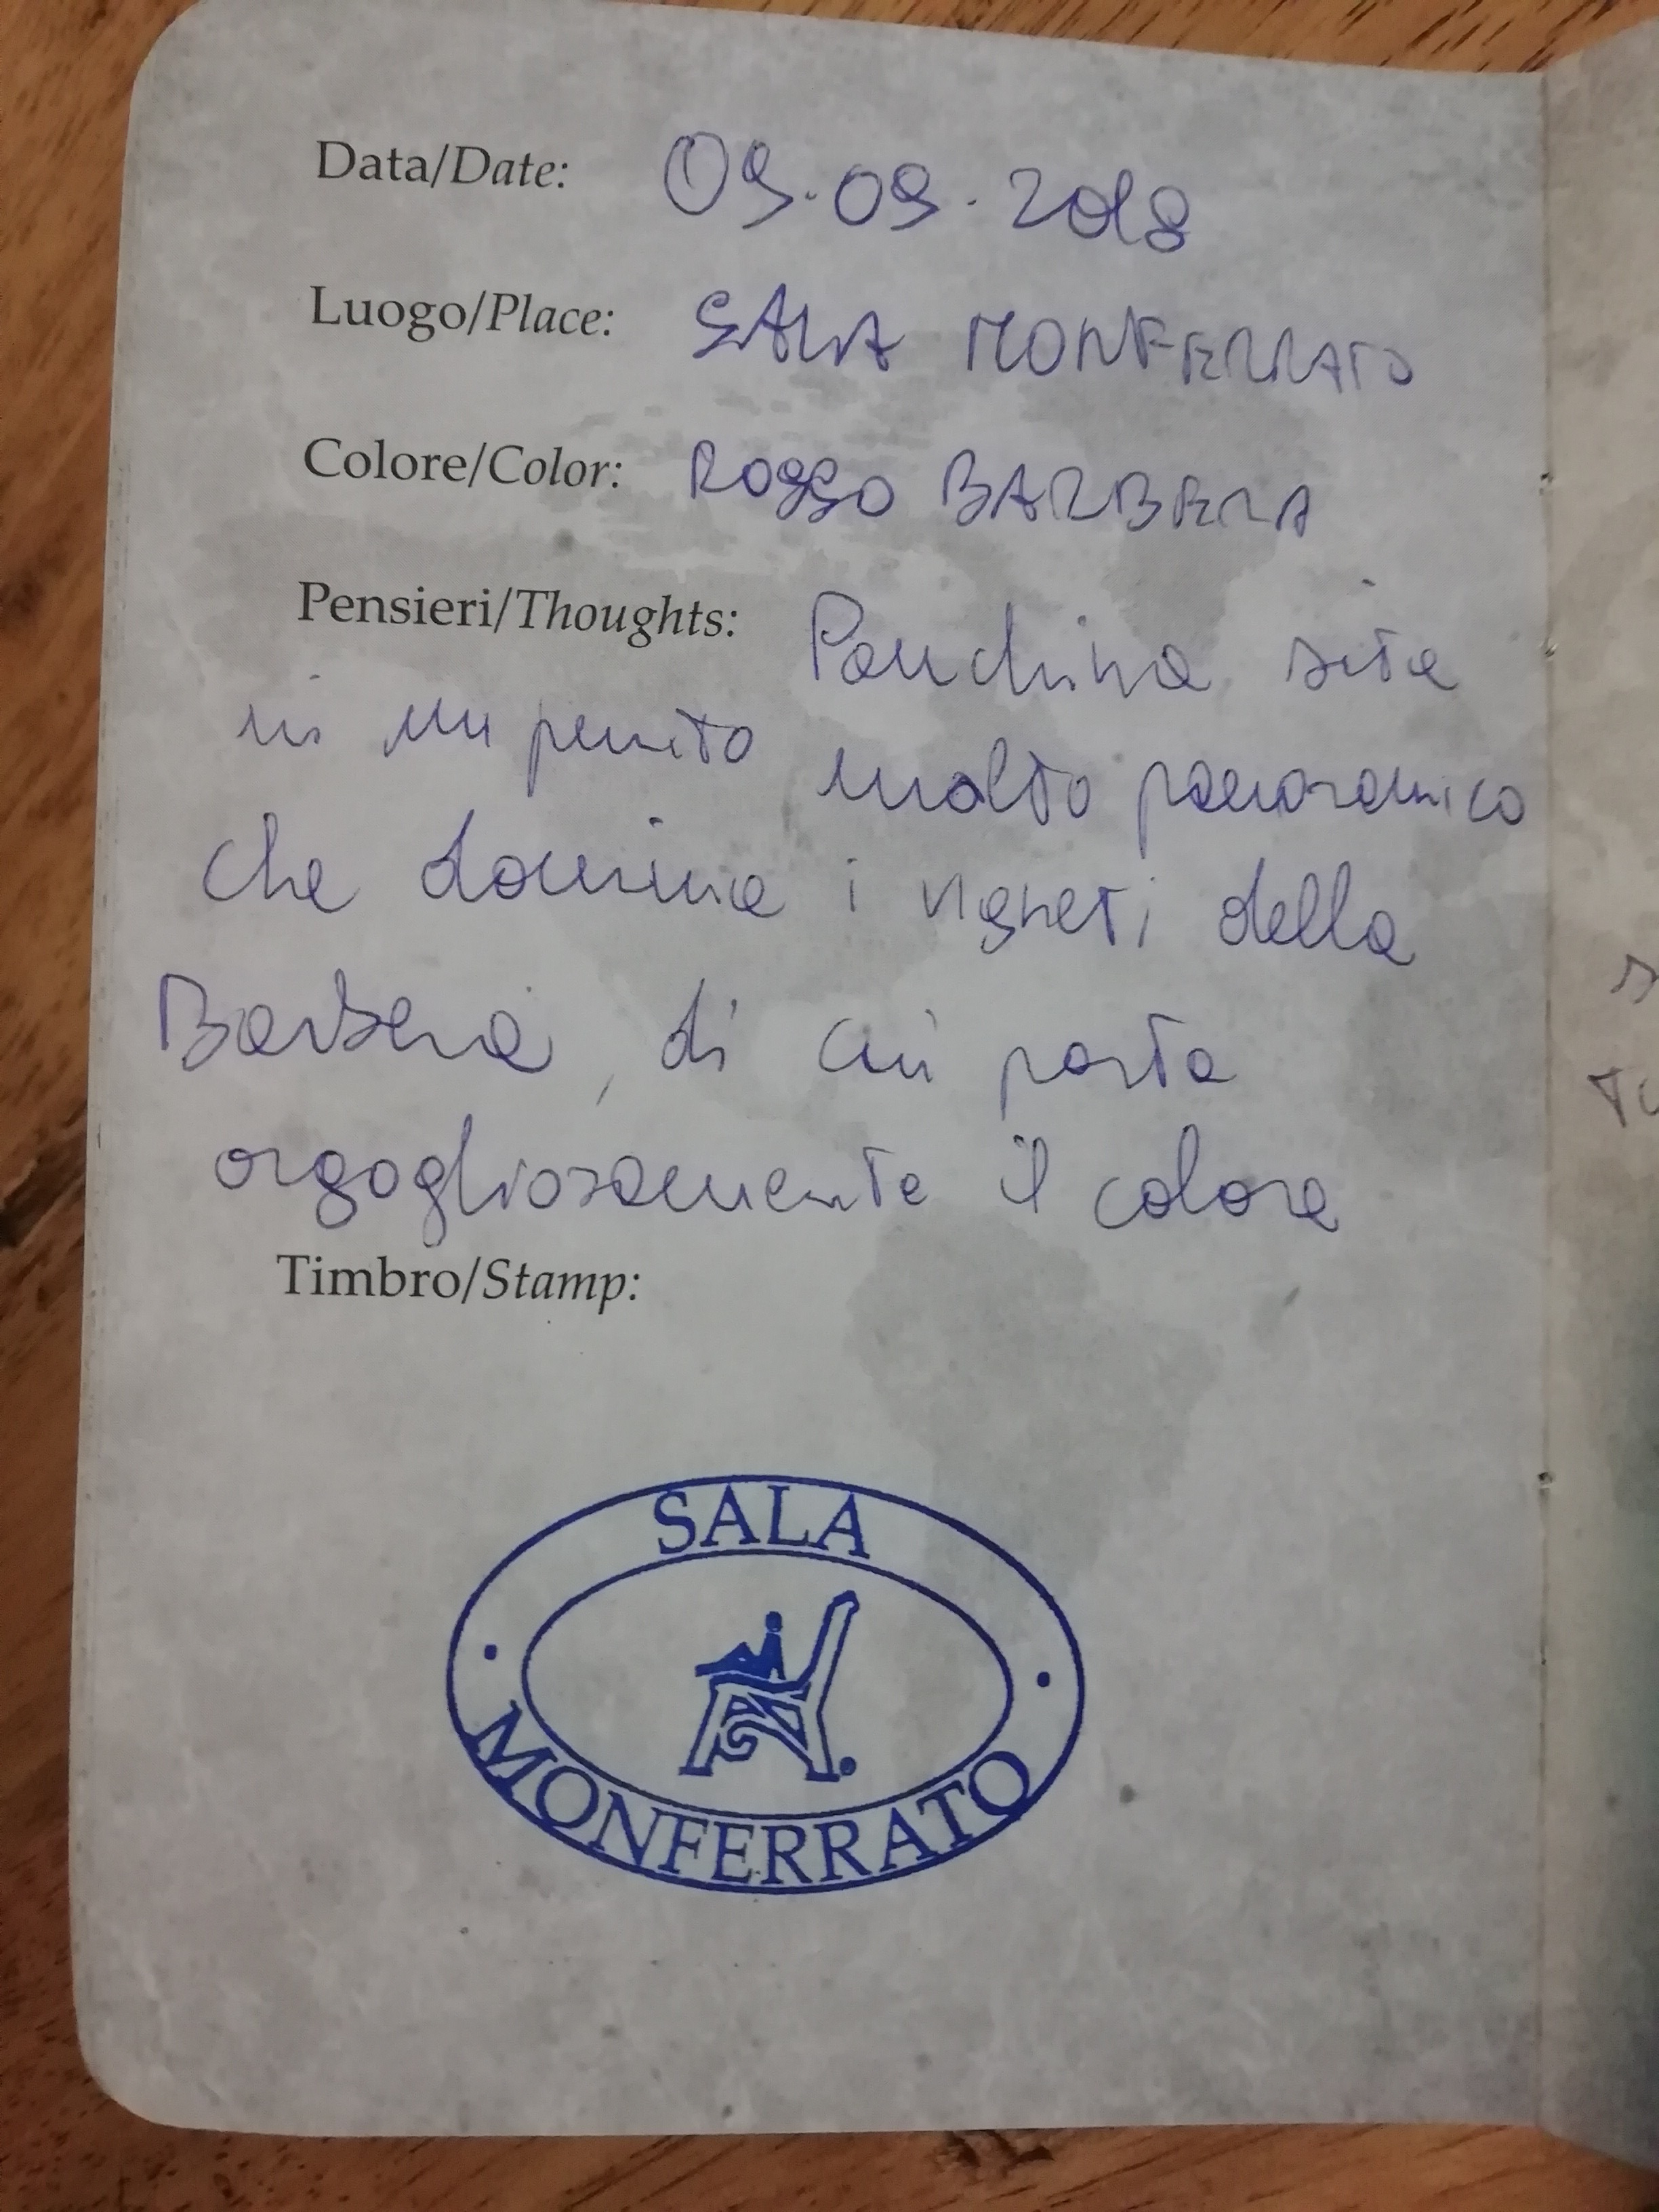 Data/Date: 09.09.2018
Luogo/Place: SALA MONFERRATO
Colore/Color: ROSSO BARBERA
Pensieri/Thoughts: Panchina sita
in un punto molto panoramico
che domina i vigneti della
Barbera, di cui porta
orgogliosamente il colore
Timbro/Stamp:
SALA
MONFERRATO